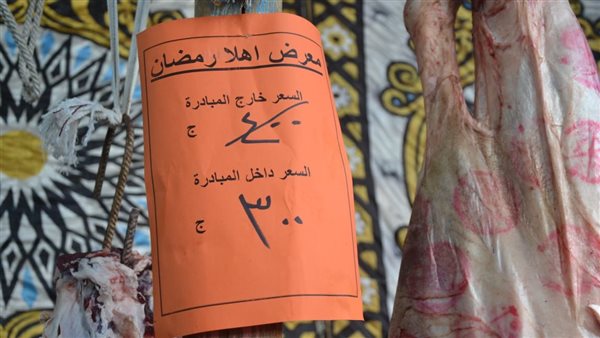 معرض اهلا رمضان
السعر خارج المبادرة
٤٠٠ ج
السعر داخل المبادرة
٣٠٠ ج